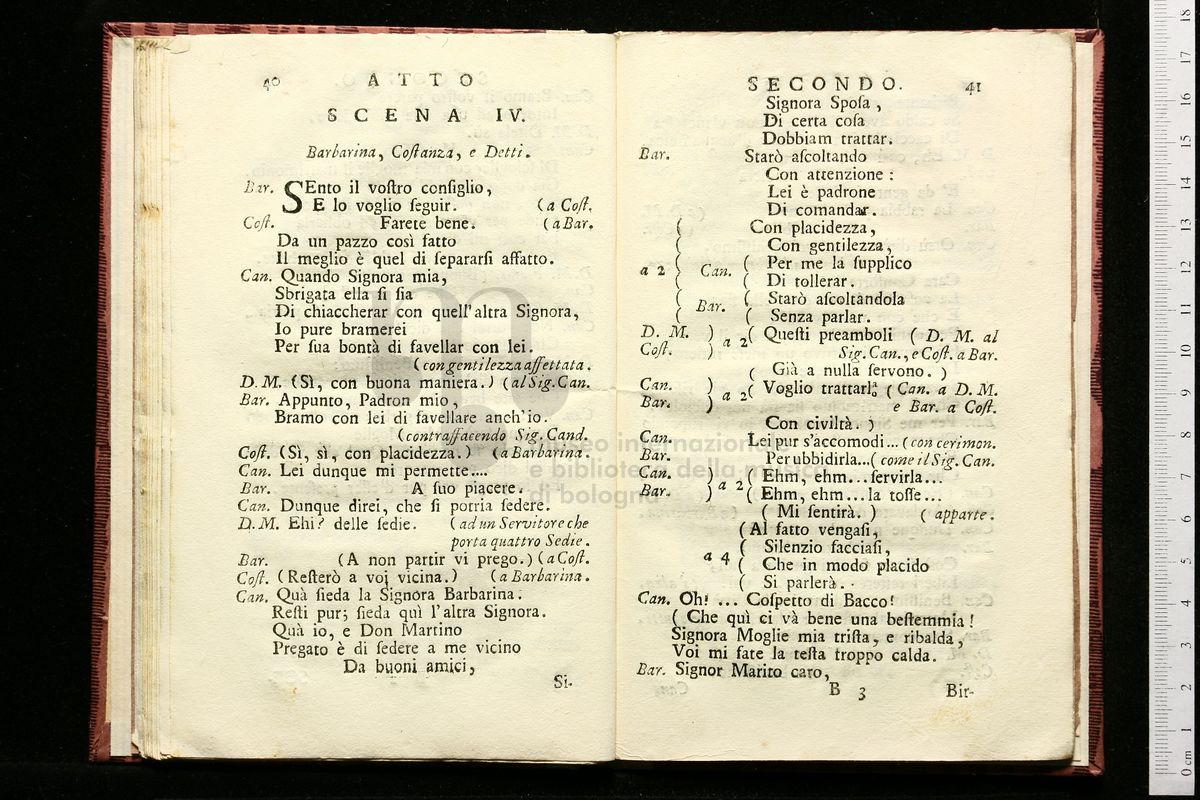 40 ATTO
SCENA IV.
Barbarina, Coſtanza, e Detti.
Bar. SEnto il voſtro conſiglio,
E lo voglio ſeguir. (a Coſt.
Coſt. Farete bene. (a Bar.
Da un pazzo così fatto
Il meglio è quel di ſepararſi affatto.
Can. Quando Signora mia,
Sbrigata ella ſi ſia
Di chiaccherar con quell'altra Signora,
Io pure bramerei
Per ſua bontà di favellar con lei.
(con gentilezza affettata.
D. M. (Sì, con buona maniera.) (al Sig. Can.
Bar. Appunto, Padron mio,
Bramo con lei di favellare anch'io.
(contraffacendo Sig. Cand.
Coſt. (Sì, sì, con placidezza.) (a Barbarina.
Can. Lei dunque mi permette....
Bar. A ſuo piacere.
Can. Dunque direi, che ſi potria ſedere.
D. M. Ehi? delle ſedie. (ad un Servitore che
porta quattro Sedie.
Bar. (A non partir vi prego.) (a Coſt.
Coſt. (Reſterò a voi vicina.) (a Barbarina.
Can. Quà ſieda la Signora Barbarina.
Reſti pur; ſieda quì l'altra Signora.
Quà io, e Don Martino
Pregato è di ſedere a me vicino
Da buoni amici,
Si-
SECONDO. 41
Signora Spoſa,
Di certa coſa
Dobbiam trattar.
Bar. Starò aſcoltando
Con attenzione:
Lei è padrone
Di comandar.
( Con placidezza,
( Con gentilezza,
a 2 ( Can. ( Per me la ſupplico
( Di tollerar.
( Bar. ( Starò aſcoltandola
( Senza parlar.
D. M. ) a 2 ( Queſti preamboli ( D. M. al
Coſt. ) Sig. Can., e Coſt. a Bar.
( Già a nulla ſervono. )
Can. ) a 2 ( Voglio trattarla ( Can. a D. M.
Bar. ) e Bar. a Coſt.
Con civiltà. )
Can. Lei pur s'accomodi... (con cerimon.
Bar. Per ubbidirla...( come il Sig. Can.
Can. ) a 2 ( Ehm, ehm... ſervirla...
Bar. ) ( Ehm, ehm... la toſſe...
( Mi ſentirà. ) ( apparte.
( Al fatto vengaſi,
a 4 ( Silenzio facciaſi,
( Che in modo placido
( Si parlerà.
Can. Oh! ... Coſpetto di Bacco!
( Che quì ci và bene una beſtemmia!
Signora Moglie mia triſta, e ribalda,
Voi mi fate la teſta troppo calda.
Bar. Signor Marito caro,
B 3 Bir-
museo internazionale
e biblioteca della musica
di bologna